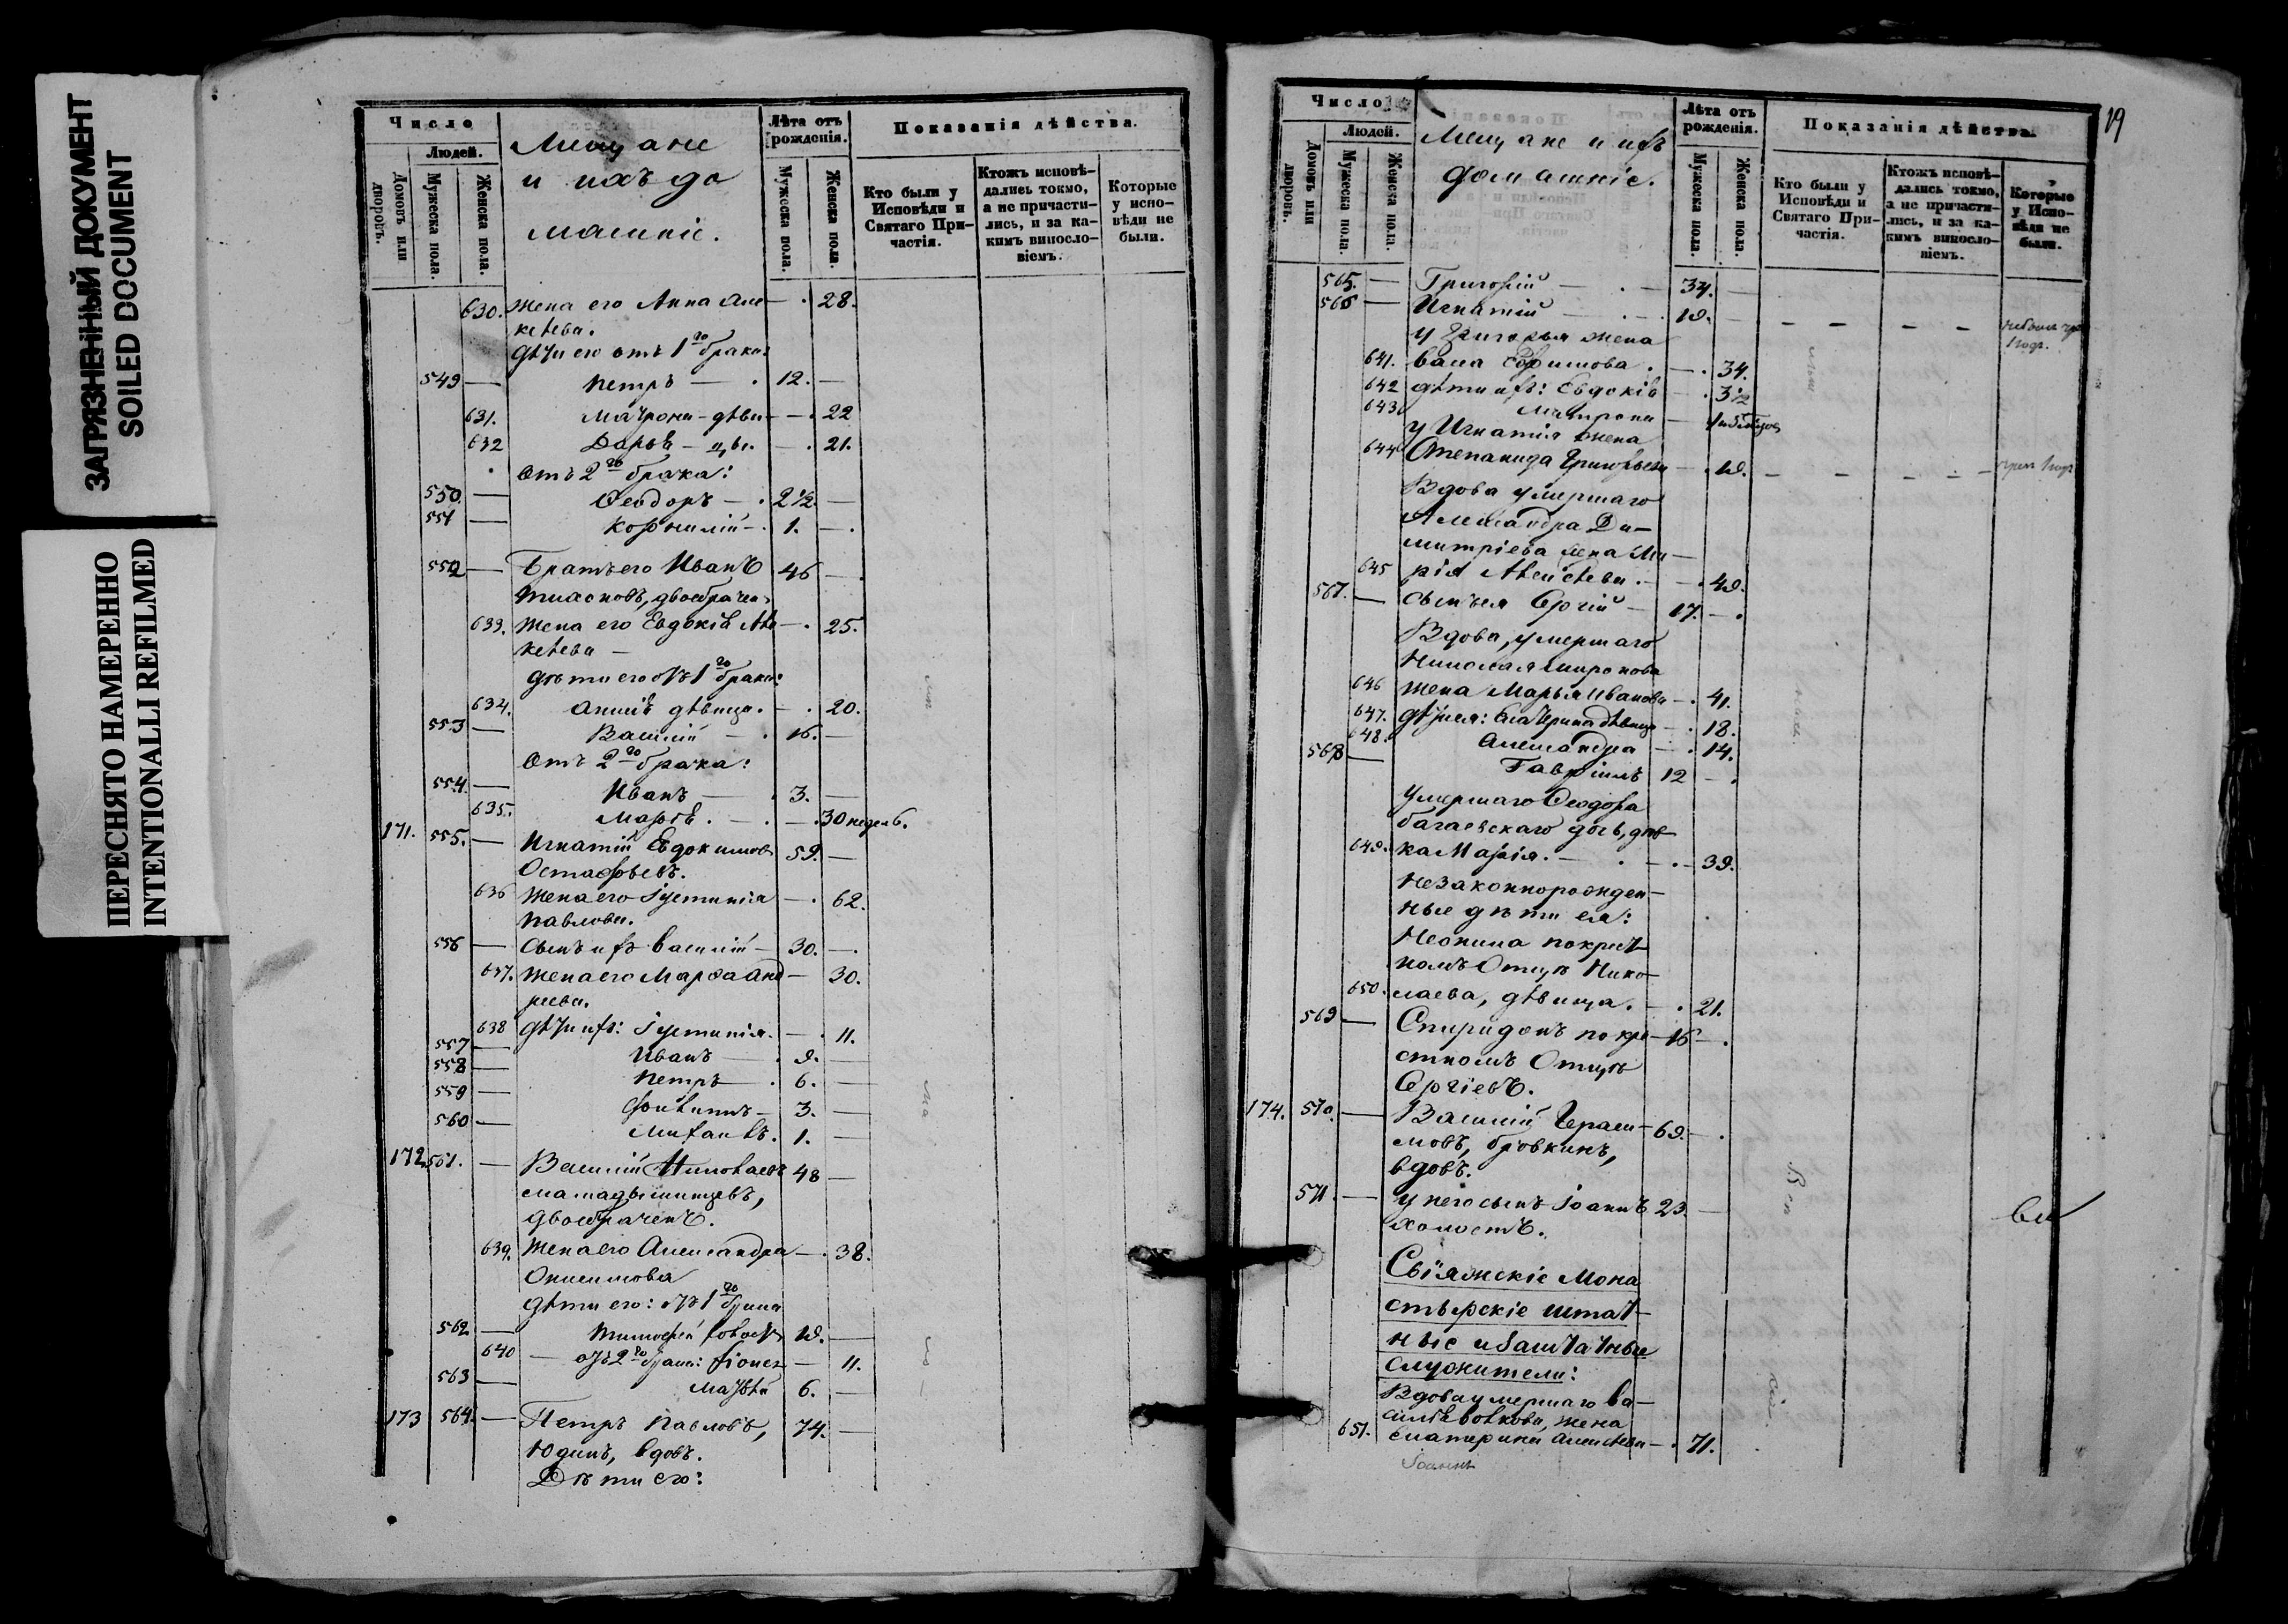 ЗАГРЯЗНЕННЫЙ ДОКУМЕНТ
SOILED DOCUMENT
ПЕРЕСНЯТО НАМЕРЕННО
INTENTIONALLI REFILMED
Число
Людей.
Домовъ или дворовъ.
Мужеска пола.
Женска пола.
Мещане
и ихъ до
машніе.
Лѣта отъ рожденія.
Мужеска пола.
Женска пола.
Показанія дѣйства.
Кто были у Исповѣди и Святаго Причастія.
Ктожъ исповѣдались токмо, а не причастились, и за какимъ винословіемъ.
Которые у исповѣди не были.
630. Жена его Анна Але — . 28.
ксѣева.
дѣти его отъ 1го брака:
549 — Петръ — . 12. —
631. Матрона – дѣви — . 22
632 Дарья – — . 21.
отъ 2го брака:
550. — Ѳеодоръ — . 2 1/2. —
551 — Корнилій — . 1. — .
552 — Братъ его Иванъ 46 — .
двоебрачен
633. Жена его Евдокія Але — . 25.
ксѣева —
дѣти его отъ 1го брака:
634. дѣвица. — . 20.
553 — Василій — . 16. —
отъ 2го брака:
554. — Иванъ — . 3. —
635. Марѳа . — . — . 30 недель.
171. 555. — Игнатій Евдокимовъ 59. —
Остафьевъ.
636 Жена его Іустинія — . 62.
Павлова.
556 — Сынъ ихъ Василій — 30. — .
637. Жена его Марѳа Анд — 30.
реева.
638 дѣти ихъ: Іустинія. — . 11.
557 — Иванъ — . 9. —
558 — Петръ — . 6. —
559 — 3. —
560 — 1. —
172. 561. — Василій Николаевъ 48 —
двоебраченъ.
639. Жена его Александра — . 38.
Онисимова
дѣти его: отъ 1го брака
562 — Тимофей 19. —
640 — отъ 2го брака: — 11.
563 — Матвѣй 6. —
173 564. — Петръ Павловъ, 74. —
Юдинъ, вдовъ.
Дѣти его:
19
Число
Людей.
Домовъ или дворовъ.
Мужеска пола.
Женска пола.
Мещане и ихъ
домашніе.
Лѣта отъ рожденія.
Мужеска пола.
Женска пола.
Показанія дѣйства.
Кто были у Исповѣди и Святаго Причастія.
Ктожъ исповѣдались токмо, а не причастились, и за какимъ винословіемъ.
Которые у Исповѣди не были.
565. — Григорій — . — 37. —
566 — Игнатій — . — 19. —
у Григорья жена
641. Ефимова . — . 34.
642 дѣти ихъ: Евдокія — . 3 1/2
643. Матрона —
у Игнатія жена
644 Степанида Григорьева — . 19.
Вдова умершаго
Александра Ди—
митріева жена Ма—
645 рія Алексѣева . — . 49.
567. — сынъ ея Сергій — 17. — .
Вдова, умершаго
Николая Миронова
646 жена Марья Иванова — . 41.
647. дѣти ея: Екатерина дѣвица — . 18.
648. Александра — . 14.
568 — Гавріилъ 12 — .
Умершаго Ѳеодора
Багаевскаго дочь, дѣв—
649. ка Марія . — . — . — 39.
Незаконнорожден—
ные дѣти ея:
Неонила по крест—
номъ Отцѣ Нико—
650. лаева, дѣвица . — . 21.
569 — Спиридонъ по кре— 16 — .
стномъ Отцѣ
Сергіевъ.
174. 570. — Василій Гераси— 69. — .
мовъ, Бровкинъ,
вдовъ.
571. — у него сынъ Іоаннъ 23. —
холостъ.
Свіяжскіе Мона
стырскіе штат—
ные и заштатные
служители:
Вдова умершаго Ва—
силья Волкова, жена
651. Екатерина Алексѣева — . 71.